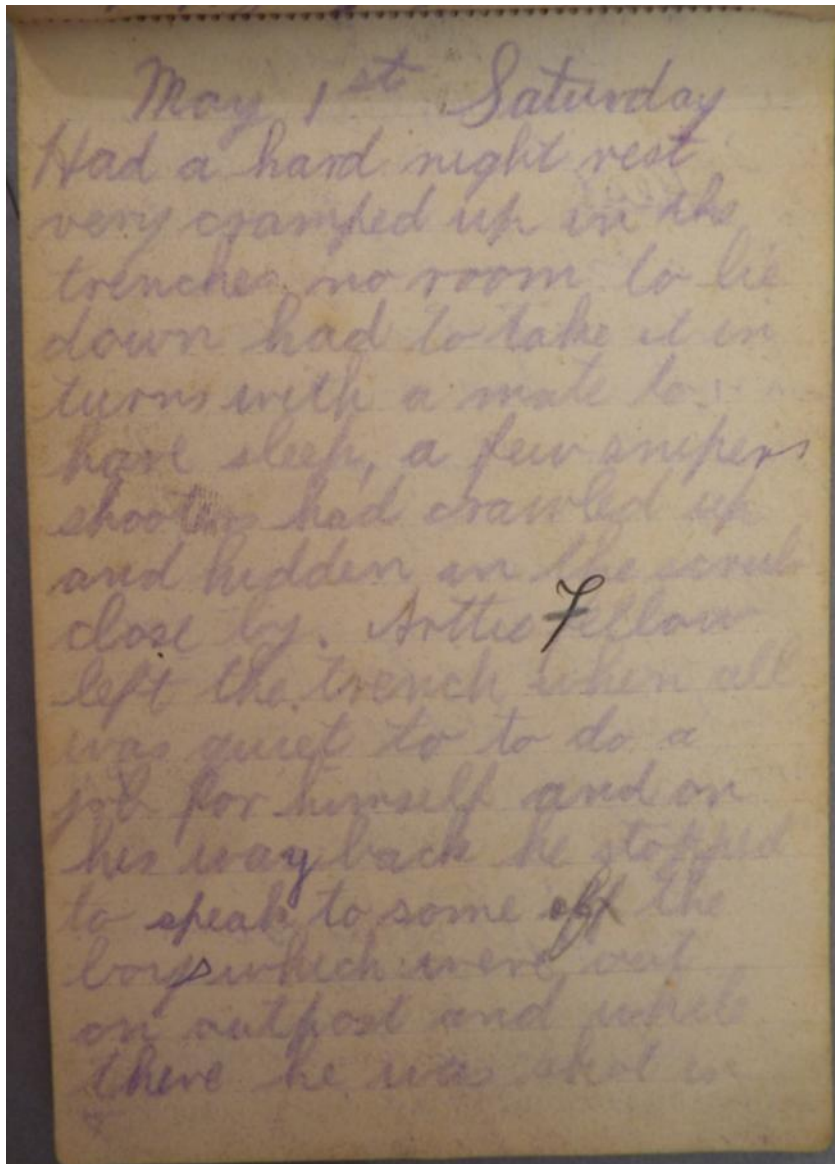 May 1st Saturday
Had a hard night rest
very cramped up in the
trenches no room to lie
down had to take it in
turns with a mate to
have sleep, a few snipers
shooters had crawled up
and hidden in the scrub
close by. Arttie Fellow
left the trench when all
was quiet to to do a
job for himself and on
his way back he stopped
to speak to some off the
boys which were out
on outpost and while
there he was shot in